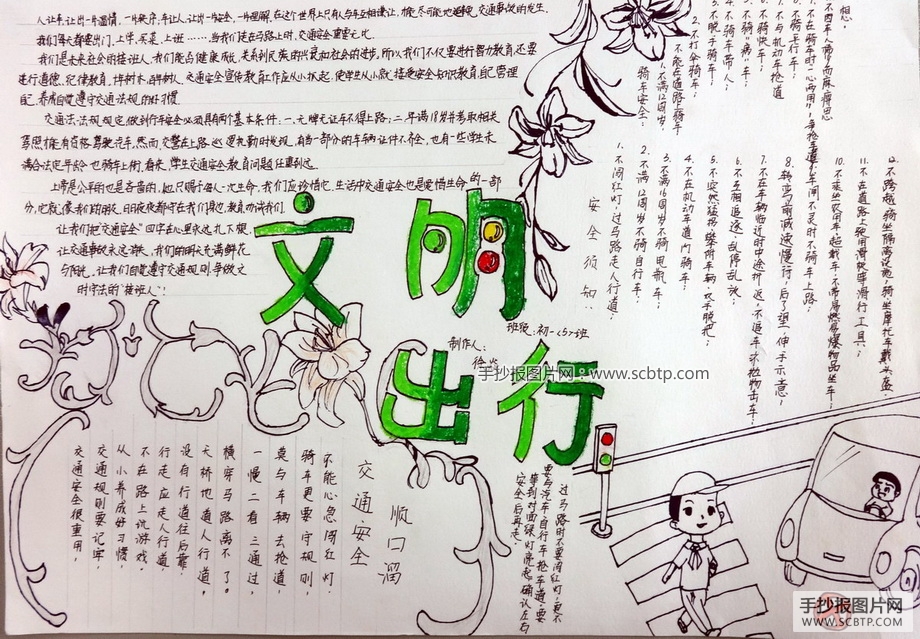 人让车,让出一片温情,一片秩序,车让人,让出一片安全,一片理解,在这个世界上只有人与车互相谦让,才能尽可能地避免交通事故的发生.
我们每天都要出门,上学、买菜、上班……当我们走在马路上时,交通安全重要无比.
我们是未来社会的接班人,我们能否健康成长,关系到民族的兴衰和社会的进步,所以我们不仅要进行智力教育,还要
进行道德、纪律教育,
交通安全宣传教育工作应从小抓起,使学生从小就接受安全知识教育,自己管理
配,养成自觉遵守交通法规的好习惯
交通法.法规规定,做到行车安全必须具有两个基本条件:一.无牌无证车不得上路,二.年满18岁并考取相关
驾照才能有资格驾驶汽车,然而交警在上路
执勤时发现,有当一部分的车辆证件不齐全,也有一些学生未
满合法定年龄也骑车上街,看来,学生交通安全教育问题任重到远.
上帝是公平的也是吝啬的,她只赐于每人一次生命,我们应珍惜它,生活中交通安全也是爱惜生命的一部
分,它就像我们的朋友,日日夜夜都守在我们身边,教育功诫我们
让我们把“交通安全”四字在心里永远扎下根,
让交通事故永远消失,我们的明天充满鲜花
与阳光,让我们自觉遵守交通规则,争做文
明守法的“接班人”!
文明
出行
班级:初一<5>班
制作人:
手抄报图片网:www.scbtp.com
骑车安全:
1.不满12周岁,
不能在道路上骑车
2.不打伞骑车;
3.不脱手骑车;
4.不骑车带人;
5.不骑“病”车;
6.不骑快车;
7.不与机动车抢道
8.不平行骑车;
安全须知:
1.不闯红灯,过马路走人行道;
2.不满12周岁不骑自行车;
3.不满16周岁不骑电瓶车;
4.不在机动车道内骑车;
5.不突然猛拐,攀附车辆,双手脱把;
6.不互相追逐,乱停乱放;
7.不在车辆临近时中途折返,不追车,不抛物击车;
8.转弯前减速慢行,后了望,伸手示意;
10.不乘坐农用车,超载车,不带易燃易爆物品坐车;
11.不在道路上使用滑板等滑行工具;
12.不跨越、倚坐隔离设施,骑坐摩托车戴头盔.
顺口溜
交通安全
不能心急闯红灯.
骑车更要守规则,
莫与车辆去抢道,
一慢二看三通过,
横穿马路离不了.
天桥地道人行道,
没有行道往后靠.
行走应走人行道,
不在路上玩游戏.
从小养成好习惯,
交通规则要记牢,
交通安全很重用,
过马路时不要闯红灯,更不
要与汽车、自行车抢车道,要
等到对面绿灯亮起,确认左右
安全后再走.
手抄报图片网
WWW.SCBTP.COM